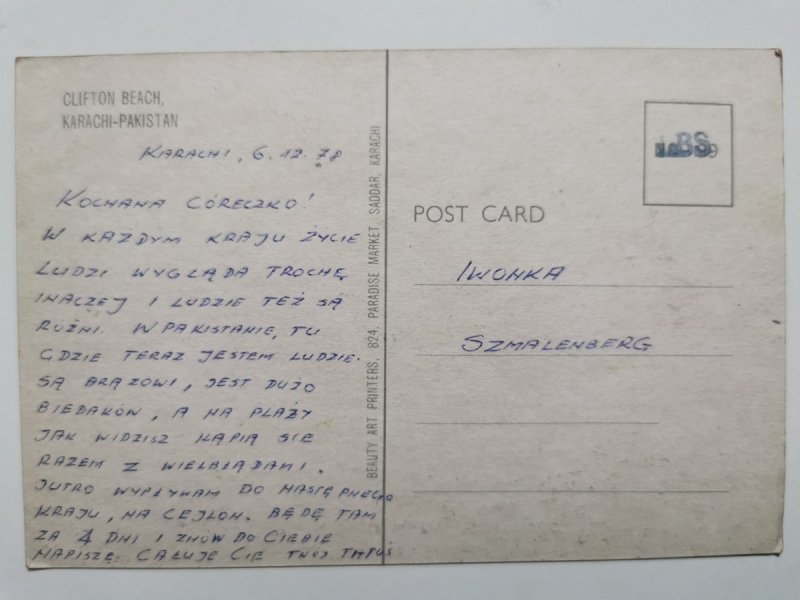 CLIFTON BEACH,
KARACHI-PAKISTAN
KARACHI, 6.12.78
KOCHANA CÓRECZKO!
W KAŻDYM KRAJU ŻYCIE
LUDZI WYGLĄDA TROCHĘ
INACZEJ I LUDZIE TEŻ SĄ
RÓŻNI. W PAKISTANIE, TU
GDZIE TERAZ JESTEM LUDZIE
SĄ BRĄZOWI, JEST DUŻO
BIEDAKÓW, A NA PLAŻY
JAK WIDZISZ KĄPIĄ SIĘ
RAZEM Z WIELBŁĄDAMI.
JUTRO WYPŁYWAM DO NASTĘPNEGO
KRAJU, NA CEJLON. BĘDĘ TAM
ZA 4 DNI I ZNÓW DO CIEBIE
NAPISZĘ. CAŁUJĘ CIĘ TWÓJ TATUŚ.
BEAUTY ART PRINTERS, 824, PARADISE MARKET, SADDAR, KARACHI
BS
POST CARD
IWONKA
SZMALENBERG